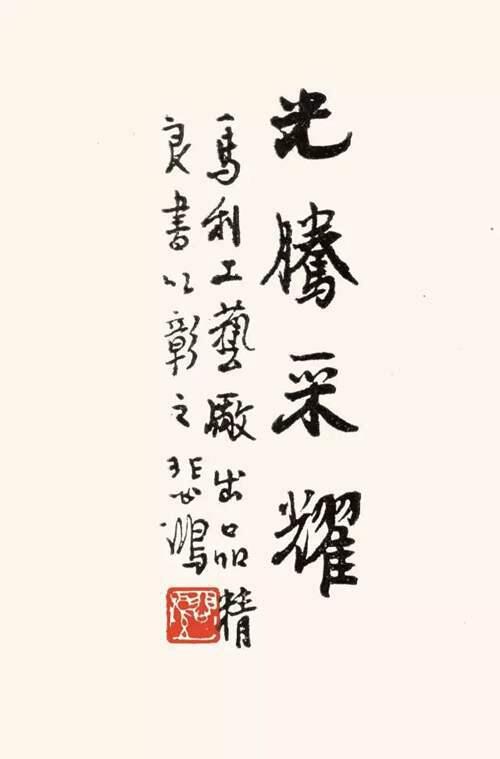 光騰采耀
馬利工藝廠出品精
良書以彰之悲鴻
悲鴻